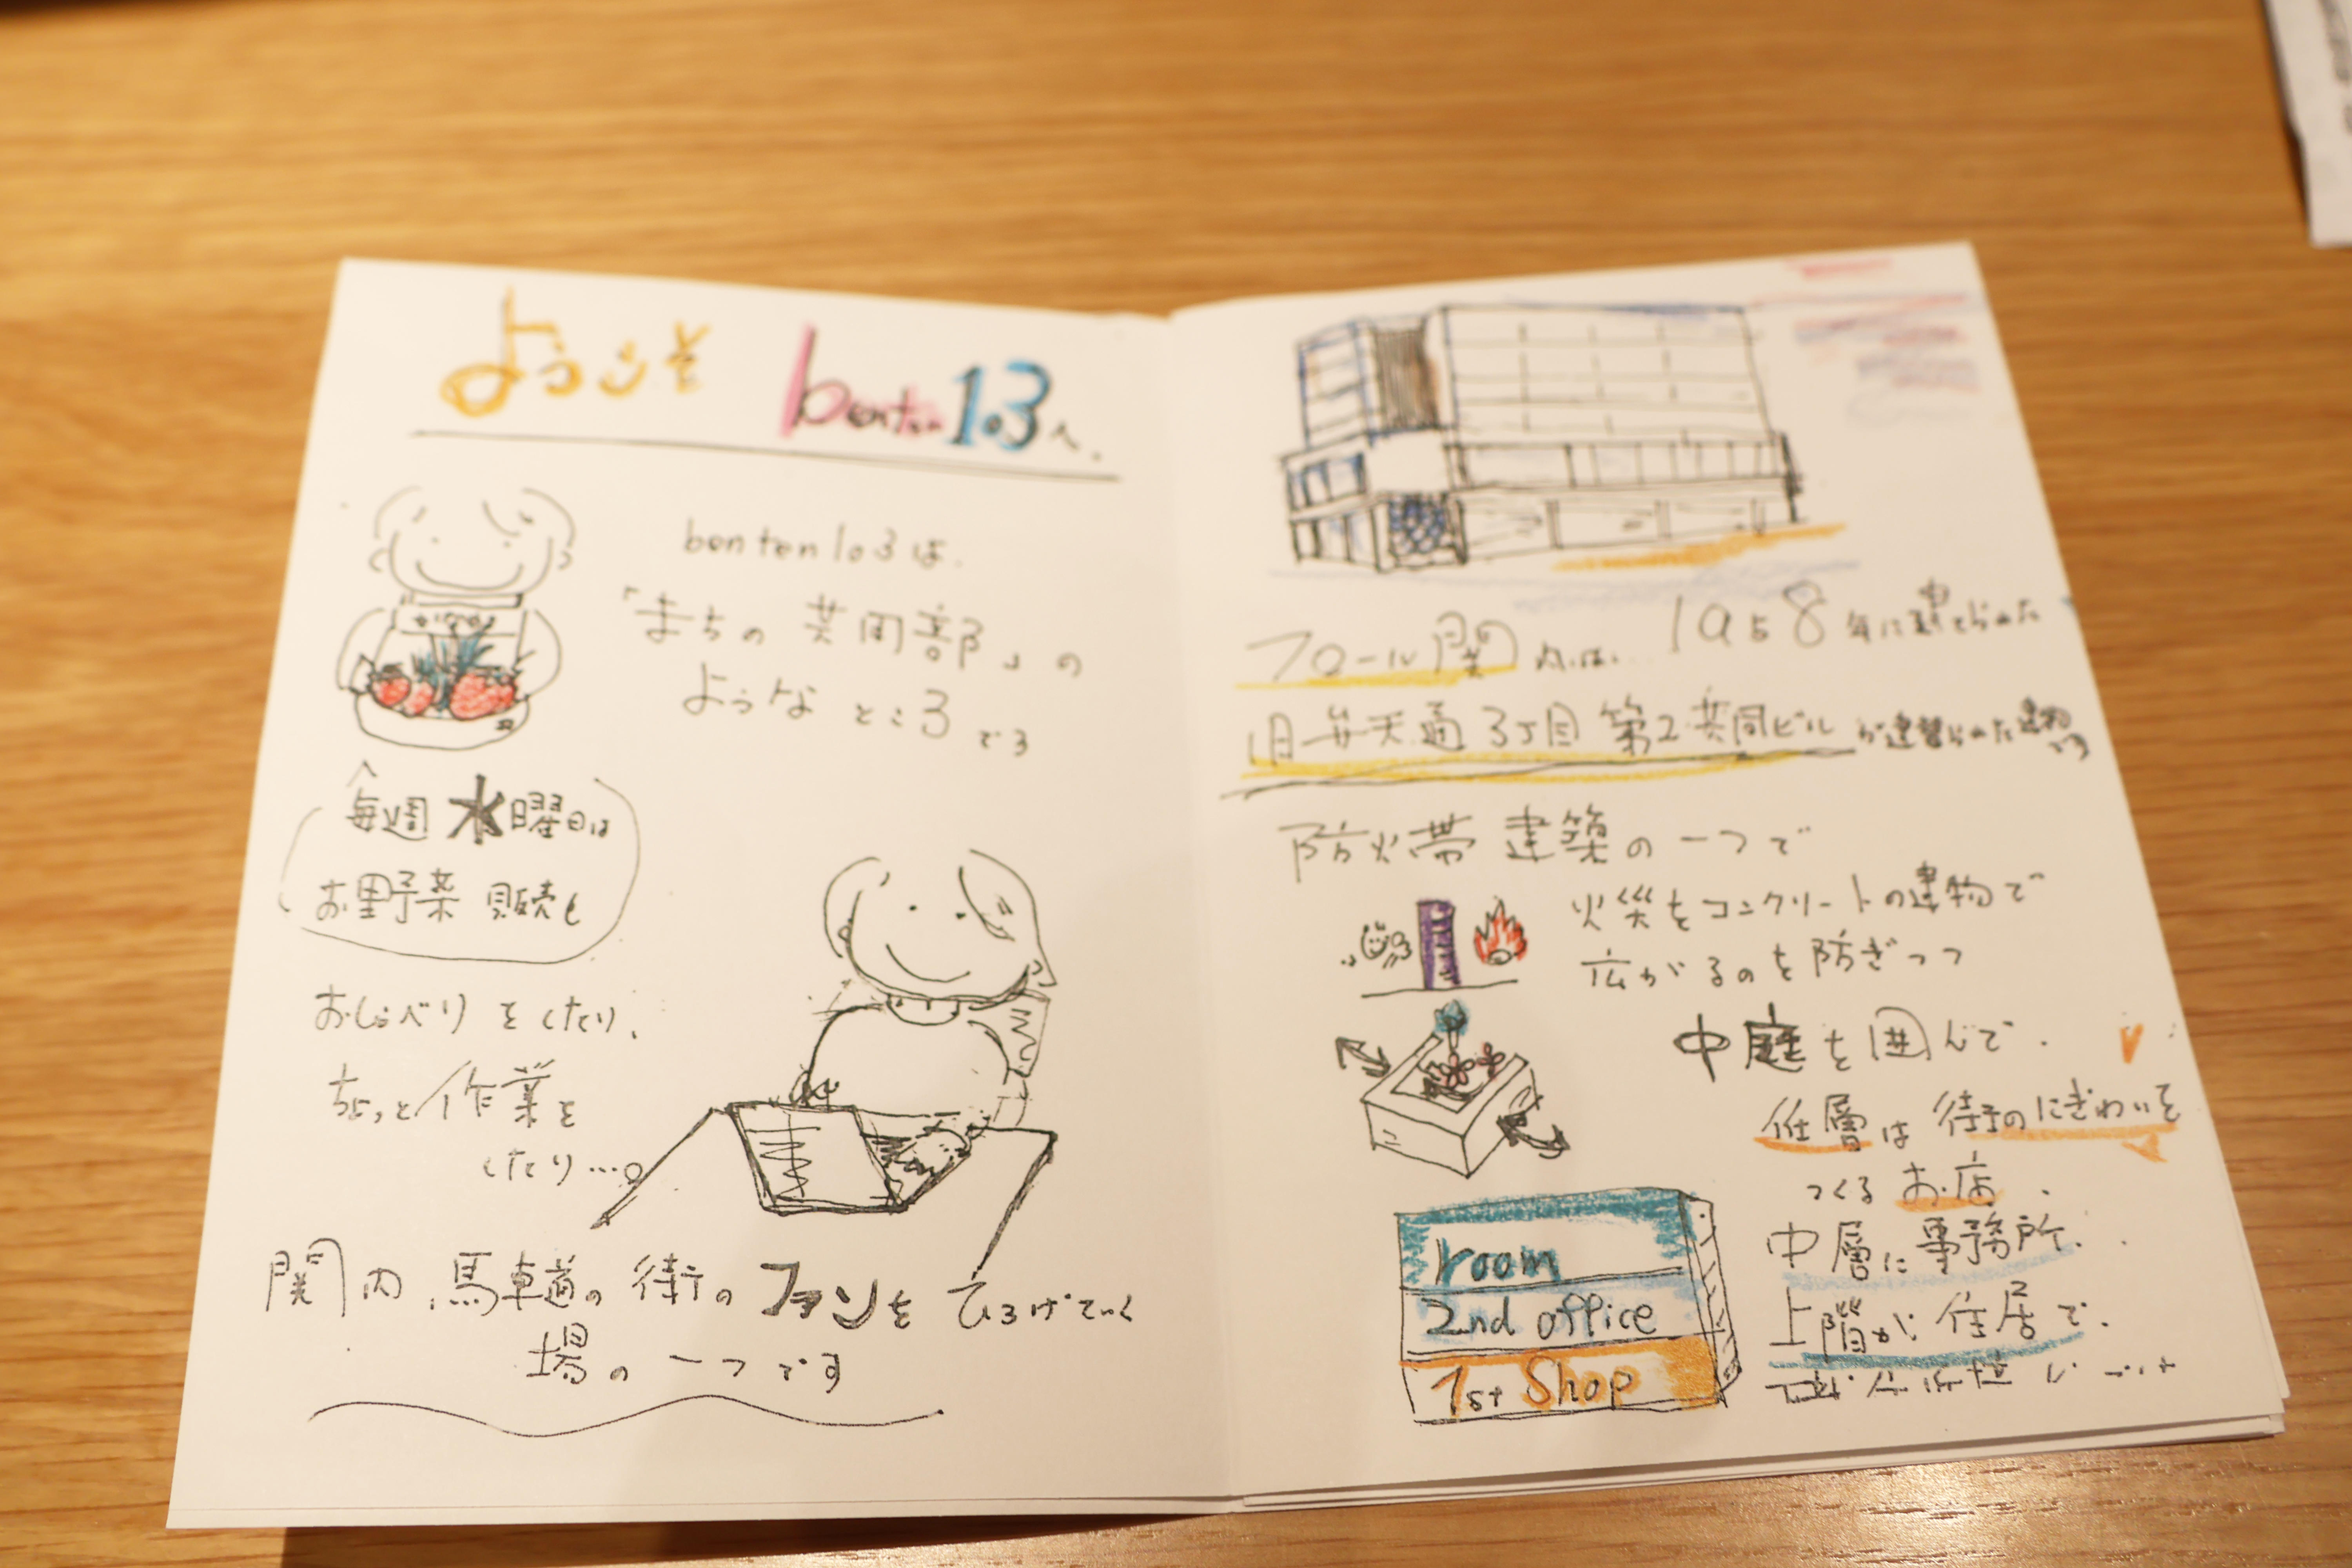 ようこそ benten103へ.
benten103は.
「まちの 共同部」の
ような ところです
毎週 水曜日は
お野菜 販売も
おしゃべり をしたり、
ちょっと作業を
したり…。
関内、馬車道の 街の ファンを ひろげていく
場の 一つです
フロール関内は、 1958年に建てられた
旧弁天通3丁目 第2共同ビル が建替られた建物です
防火帯 建築の一つで
火災をコンクリートの建物で
広がるのを防ぎつつ
中庭を囲んで.
低層は 街のにぎわいを
つくる お店.
中層に事務所.
上階が 住居で.
room
2nd office
1st Shop